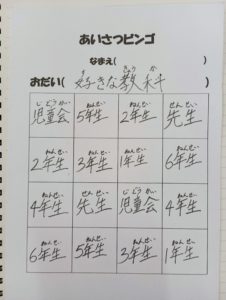 あいさつビンゴ
なまえ( )
おだい( 好きな教科 )
す きょう か
じ どう かい ねんせい ねんせい せんせい
児童会 5年生 2年生 先生
ねんせい ねんせい ねんせい ねんせい
2年生 3年生 1年生 6年生
ねんせい せんせい じ どう かい ねんせい
4年生 先生 児童会 4年生
ねんせい ねんせい ねんせい ねんせい
6年生 5年生 3年生 1年生